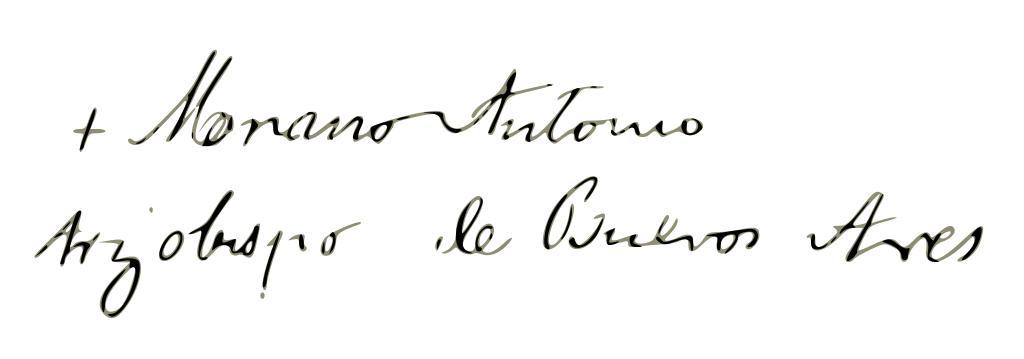 + Mariano Antonio
Arzobispo de Buenos Aires